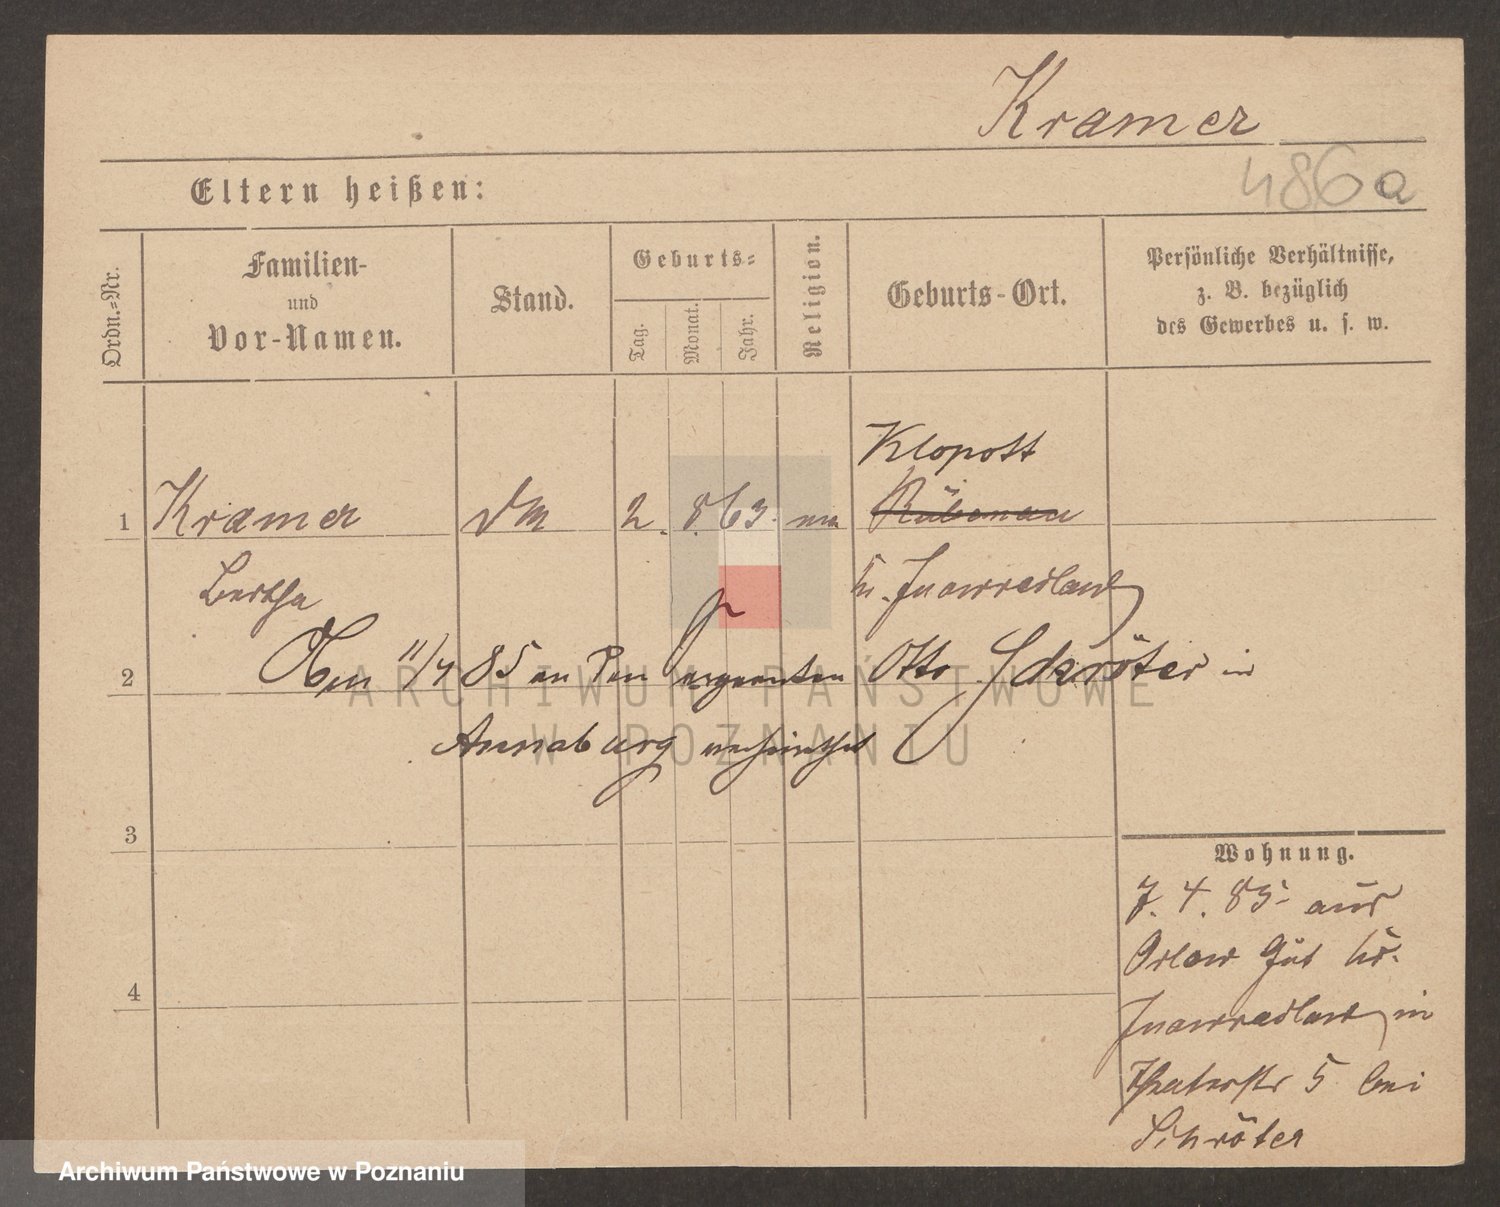 Kramer
486a
Eltern heißen:
Ordn.-Nr.
Familien-
und
Vor-Namen.
Stand.
Geburts-
Tag.
Monat.
Jahr.
Religion.
Geburts-Ort.
Persönliche Verhältnisse,
z. B. bezüglich
des Gewerbes u. s. w.
Klopott
1 Kramer 2. 8. 63.
Bertha Inowrazlaw
2 11/4 85 an den Otto Schröter in
Annaburg verheirathet
3
4
Wohnung.
7. 4. 85 aus
Orlow Gut Kr.
Inowrazlaw in
Theaterstr 5 bei
Schröter
ARCHIWUM PAŃSTWOWE
W POZNANIU
Archiwum Państwowe w Poznaniu